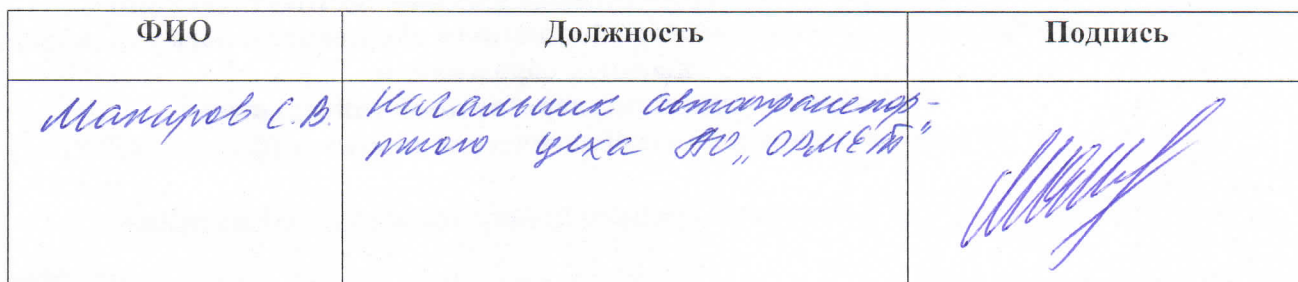 ФИО Должность Подпись
Макаров С.В. Начальник автотранспор-
тного цеха АО „ОРМЕТ"